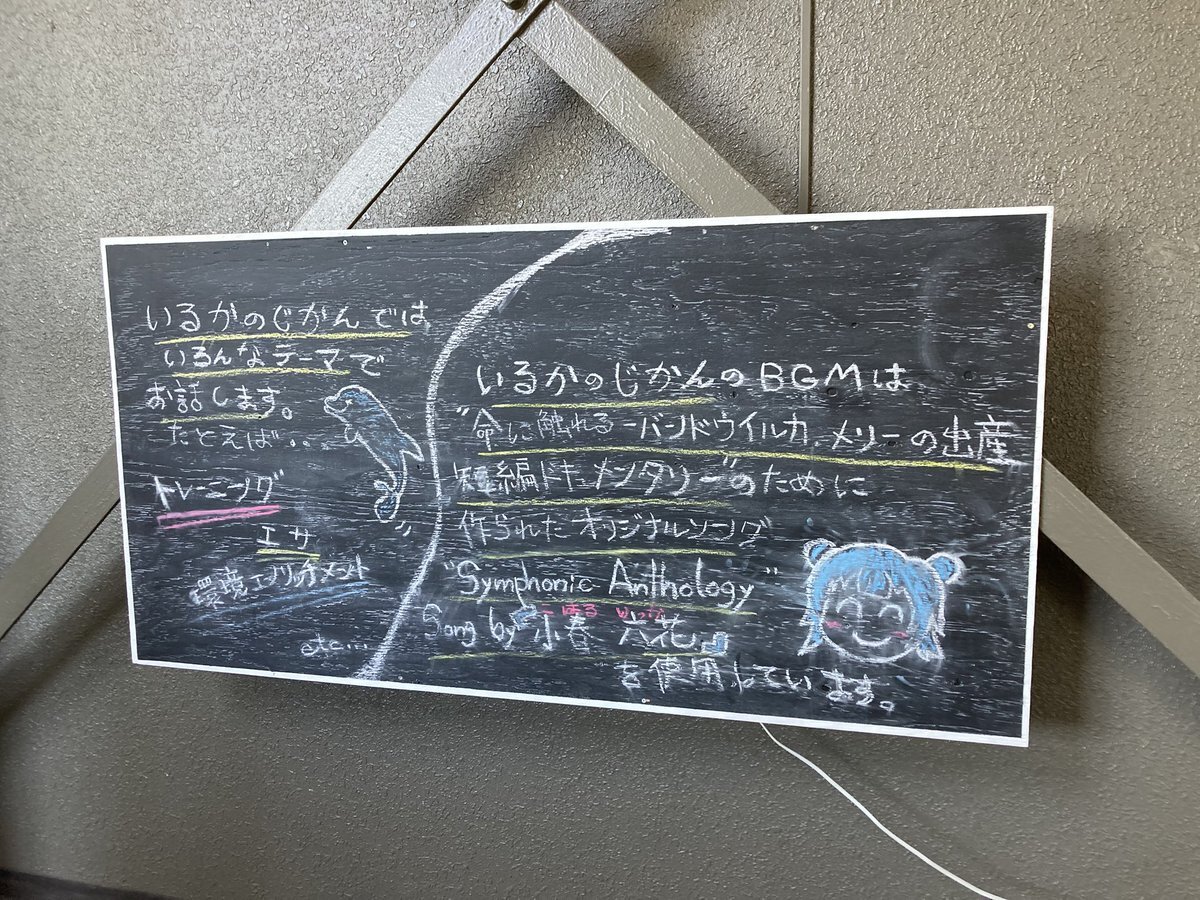 いるかのじかんでは、
いろんなテーマで
お話します。
たとえば・・・
トレーニング
エサ
環境エンリッチメント
etc...
いるかのじかんのBGMは
"命に触れる-バンドウイルカ、メリーの出産
短編ドキュメンタリー"のために
作られたオリジナルソング
"Symphonic Anthology"
こはる りっか
Song by『小春 六花』
を使用しています。